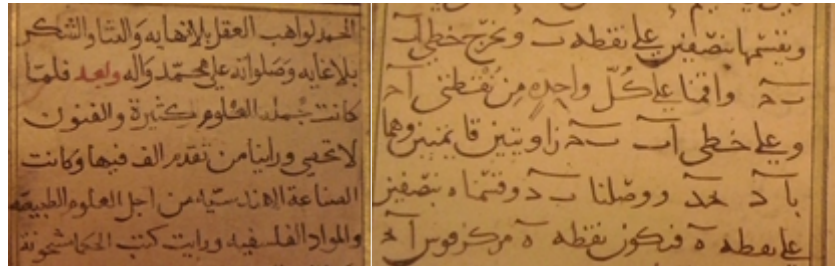 الحمد لواهب العقل بلا نهايه والثنا والشكر
بلا غايه وصلواته على محمد وآله وبعد فلما
كانت جملة العلوم كثيرة والفنون
لا تحصى وراينا من تقدم الف فيها وكانت
الصناعة الهندسيه من اجل العلوم الطبيعه
والمواد الفلسفيه ورايت كتب الحكما مشحونة
ونقسمها بنصفين على نقطه ب ونخرج خطي اب
واقمنا على كل واحده من نقطتى
وعلى خطي اب زاويتين قايمتين وهما
ووصلنا وقسمناه بنصفين
على نقطه ه فتكون نقطه ه مركز قوس